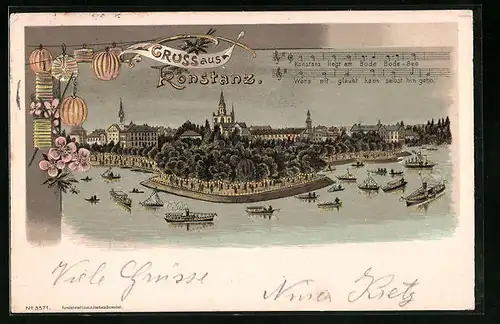 GRUSS aus
Konstanz.
Konstanz liegt am Bode Bode-See
Wers nit glaubt kann selbst hin gehn.
Viele Grüsse
Kretz
No 3571.